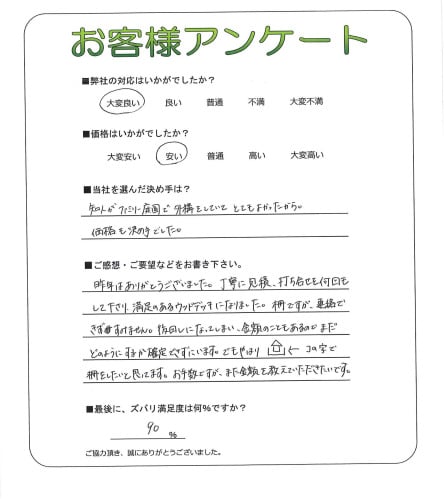 お客様アンケート
■弊社の対応はいかがでしたか？
大変良い 良い 普通 不満 大変不満
■価格はいかがでしたか？
大変安い 安い 普通 高い 大変高い
■当社を選んだ決め手は？
知人がファミリー庭園で外構をしていてとてもよかったから。
価格も決め手でした。
■ご感想・ご要望などをお書き下さい。
昨年はありがとうございました。丁寧に見積、打ち合せも何回も
して下さり、満足のあるウッドデッキになりました。柵ですが、連絡で
きずすみません。後回しになってしまい、金額のこともあるのでまだ
どのようにするか確定できずにいます。でもやはり ← コの字で
柵をしたいと思ってます。お手数ですが、また金額を教えていただきたいです。
■最後に、ズバリ満足度は何％ですか？
90 ％
ご協力頂き、誠にありがとうございました。